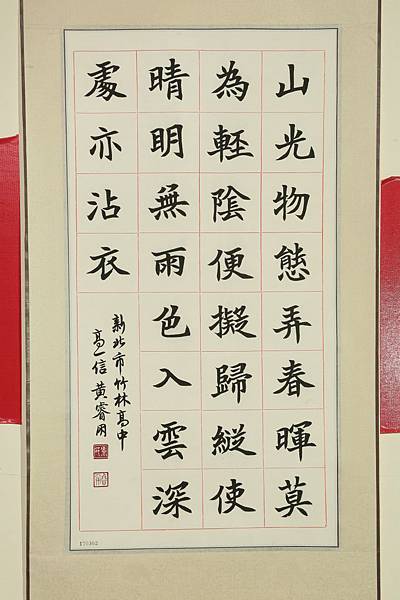 山光物態弄春暉莫
為輕陰便擬歸縱使
晴明無雨色入雲深
處亦沾衣
新北市竹林高中
高一信 黃睿用
170362